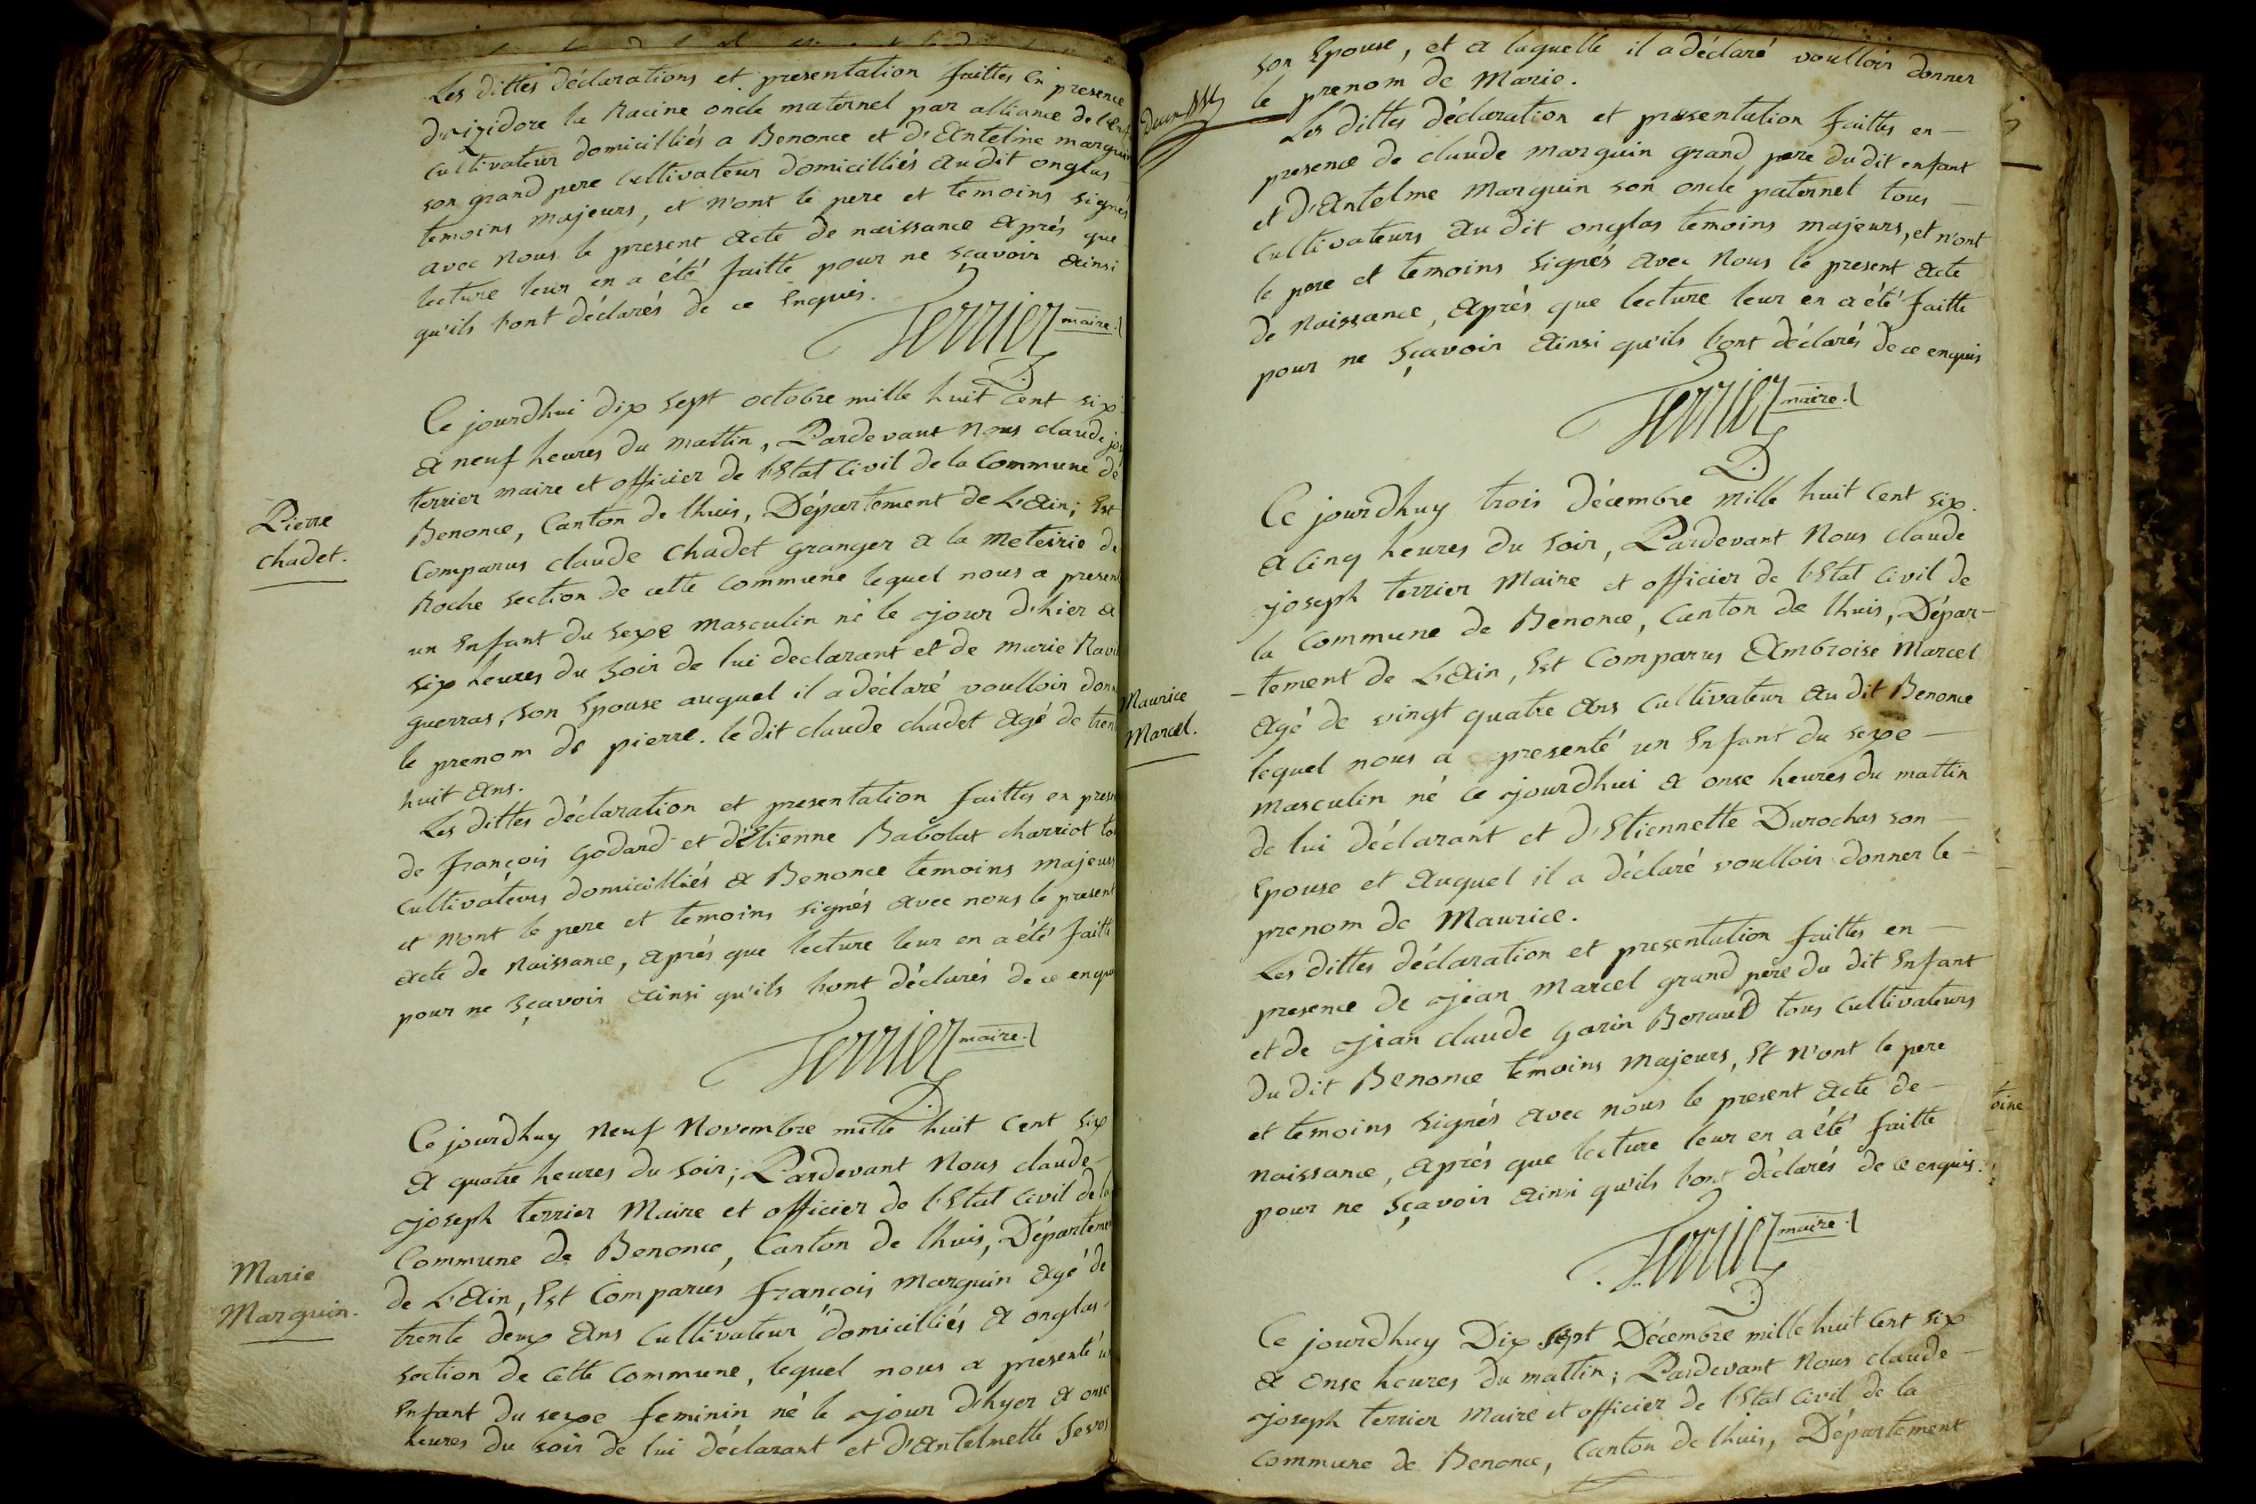 Les dittes déclarations et presentation faittes en presence
d'izidore le Racine oncle maternel par alliance de l'enf
cultivateur domicilliés a Benonce et d'Antelme marguin
son grand pere cultivateur domicilliés audit onglas
temoins majeurs, et n'ont le pere et temoins signés
avec nous le present acte de naissance après que
lecture leur en a été faitte pour ne sçavoir ainsi
qu'ils l'ont déclarés de ce enquis.
Terrier maire
Pierre
chadet.
Ce jourdhui dix sept octobre mille huit cent six
a neuf heures du mattin, Pardevant Nous claude jos
terrier maire et officier de l'Etat civil de la Commune de
Benonce, Canton de lhuis, Département de L'Ain; Est
Comparus claude chadet granger a la meteirie de
Roche section de cette commune lequel nous a present
un Enfant du sexe masculin né le jour d'hier a
six heures du soir de lui declarant et de marie Rav
guerras, son Epouse auquel il a déclaré voulloir donn
le prenom de pierre. le dit claude chadet agé de tren
huit ans.
Les dittes déclaration et presentation faittes en prese
de françois Godard et d'Etienne Babolat charriot to
cultivateurs domicilliés a Benonce temoins majeurs
et n'ont le pere et temoins signés avec nous le present
acte de Naissance, après que lecture leur en a été faitt
pour ne sçavoir ainsi qu'ils l'ont déclarés de ce enqu
Terrier maire
Marie
Marguin.
Ce jourdhuy neuf Novembre mille huit cent six
a quatre heures du soir; Pardevant Nous claude
joseph terrier Maire et officier de l'Etat civil de la
Commune de Benonce, Canton de lhuis, Départeme
de L'Ain, Est Comparus françois marguin agé de
trente deux ans cultivateur domicilliés a onglas
section de cette commune, lequel nous a presenté u
Enfant du sexe feminin né le jour d'hyer a onse
heures du soir de lui déclarant et d'Antelmette
son Epouse, et a laquelle il a déclaré voulloir donner
le prenom de Marie.
Les dittes déclaration et presentation faittes en
presence de claude marguin grand pere dudit enfant
et d'Antelme marguin son oncle paternel tous
cultivateurs audit onglas temoins majeurs, et n'ont
le pere et temoins signés avec Nous le present acte
de Naissance, après que lecture leur en a été faitte
pour ne sçavoir ainsi qu'ils l'ont déclarés de ce enquis
Terrier maire
Maurice
Marcel.
Ce jourdhuy trois décembre mille huit cent six.
a cinq heures du soir, Pardevant Nous claude
joseph terrier Maire et officier de l'Etat civil de
la Commune de Benonce, Canton de lhuis, Dépar-
-tement de L'Ain, Est Comparus Ambroise Marcel
agé de vingt quatre ans cultivateur audit Benonce
lequel nous a presenté un Enfant du sexe
masculin né ce jourdhui a onse heures du mattin
de lui déclarant et d'Etiennette Durochas son
Epouse et auquel il a déclaré voulloir donner le
prenom de Maurice.
Les dittes déclaration et presentation faittes en
presence de jean Marcel grand pere du dit Enfant
et de jean claude garin Beraud tous cultivateurs
dudit Benonce temoins majeurs, Et n'ont le pere
et temoins signés avec nous le present acte de
naissance, après que lecture leur en a été faitte
pour ne sçavoir ainsi qu'ils l'ont déclarés de ce enquis.
Terrier maire
Ce jourdhuy Dix sept Décembre mille huit cent six
a onse heures du mattin; Pardevant Nous claude
joseph terrier maire et officier de l'Etat civil de la
commune de Benonce, Canton de lhuis, Département
toine